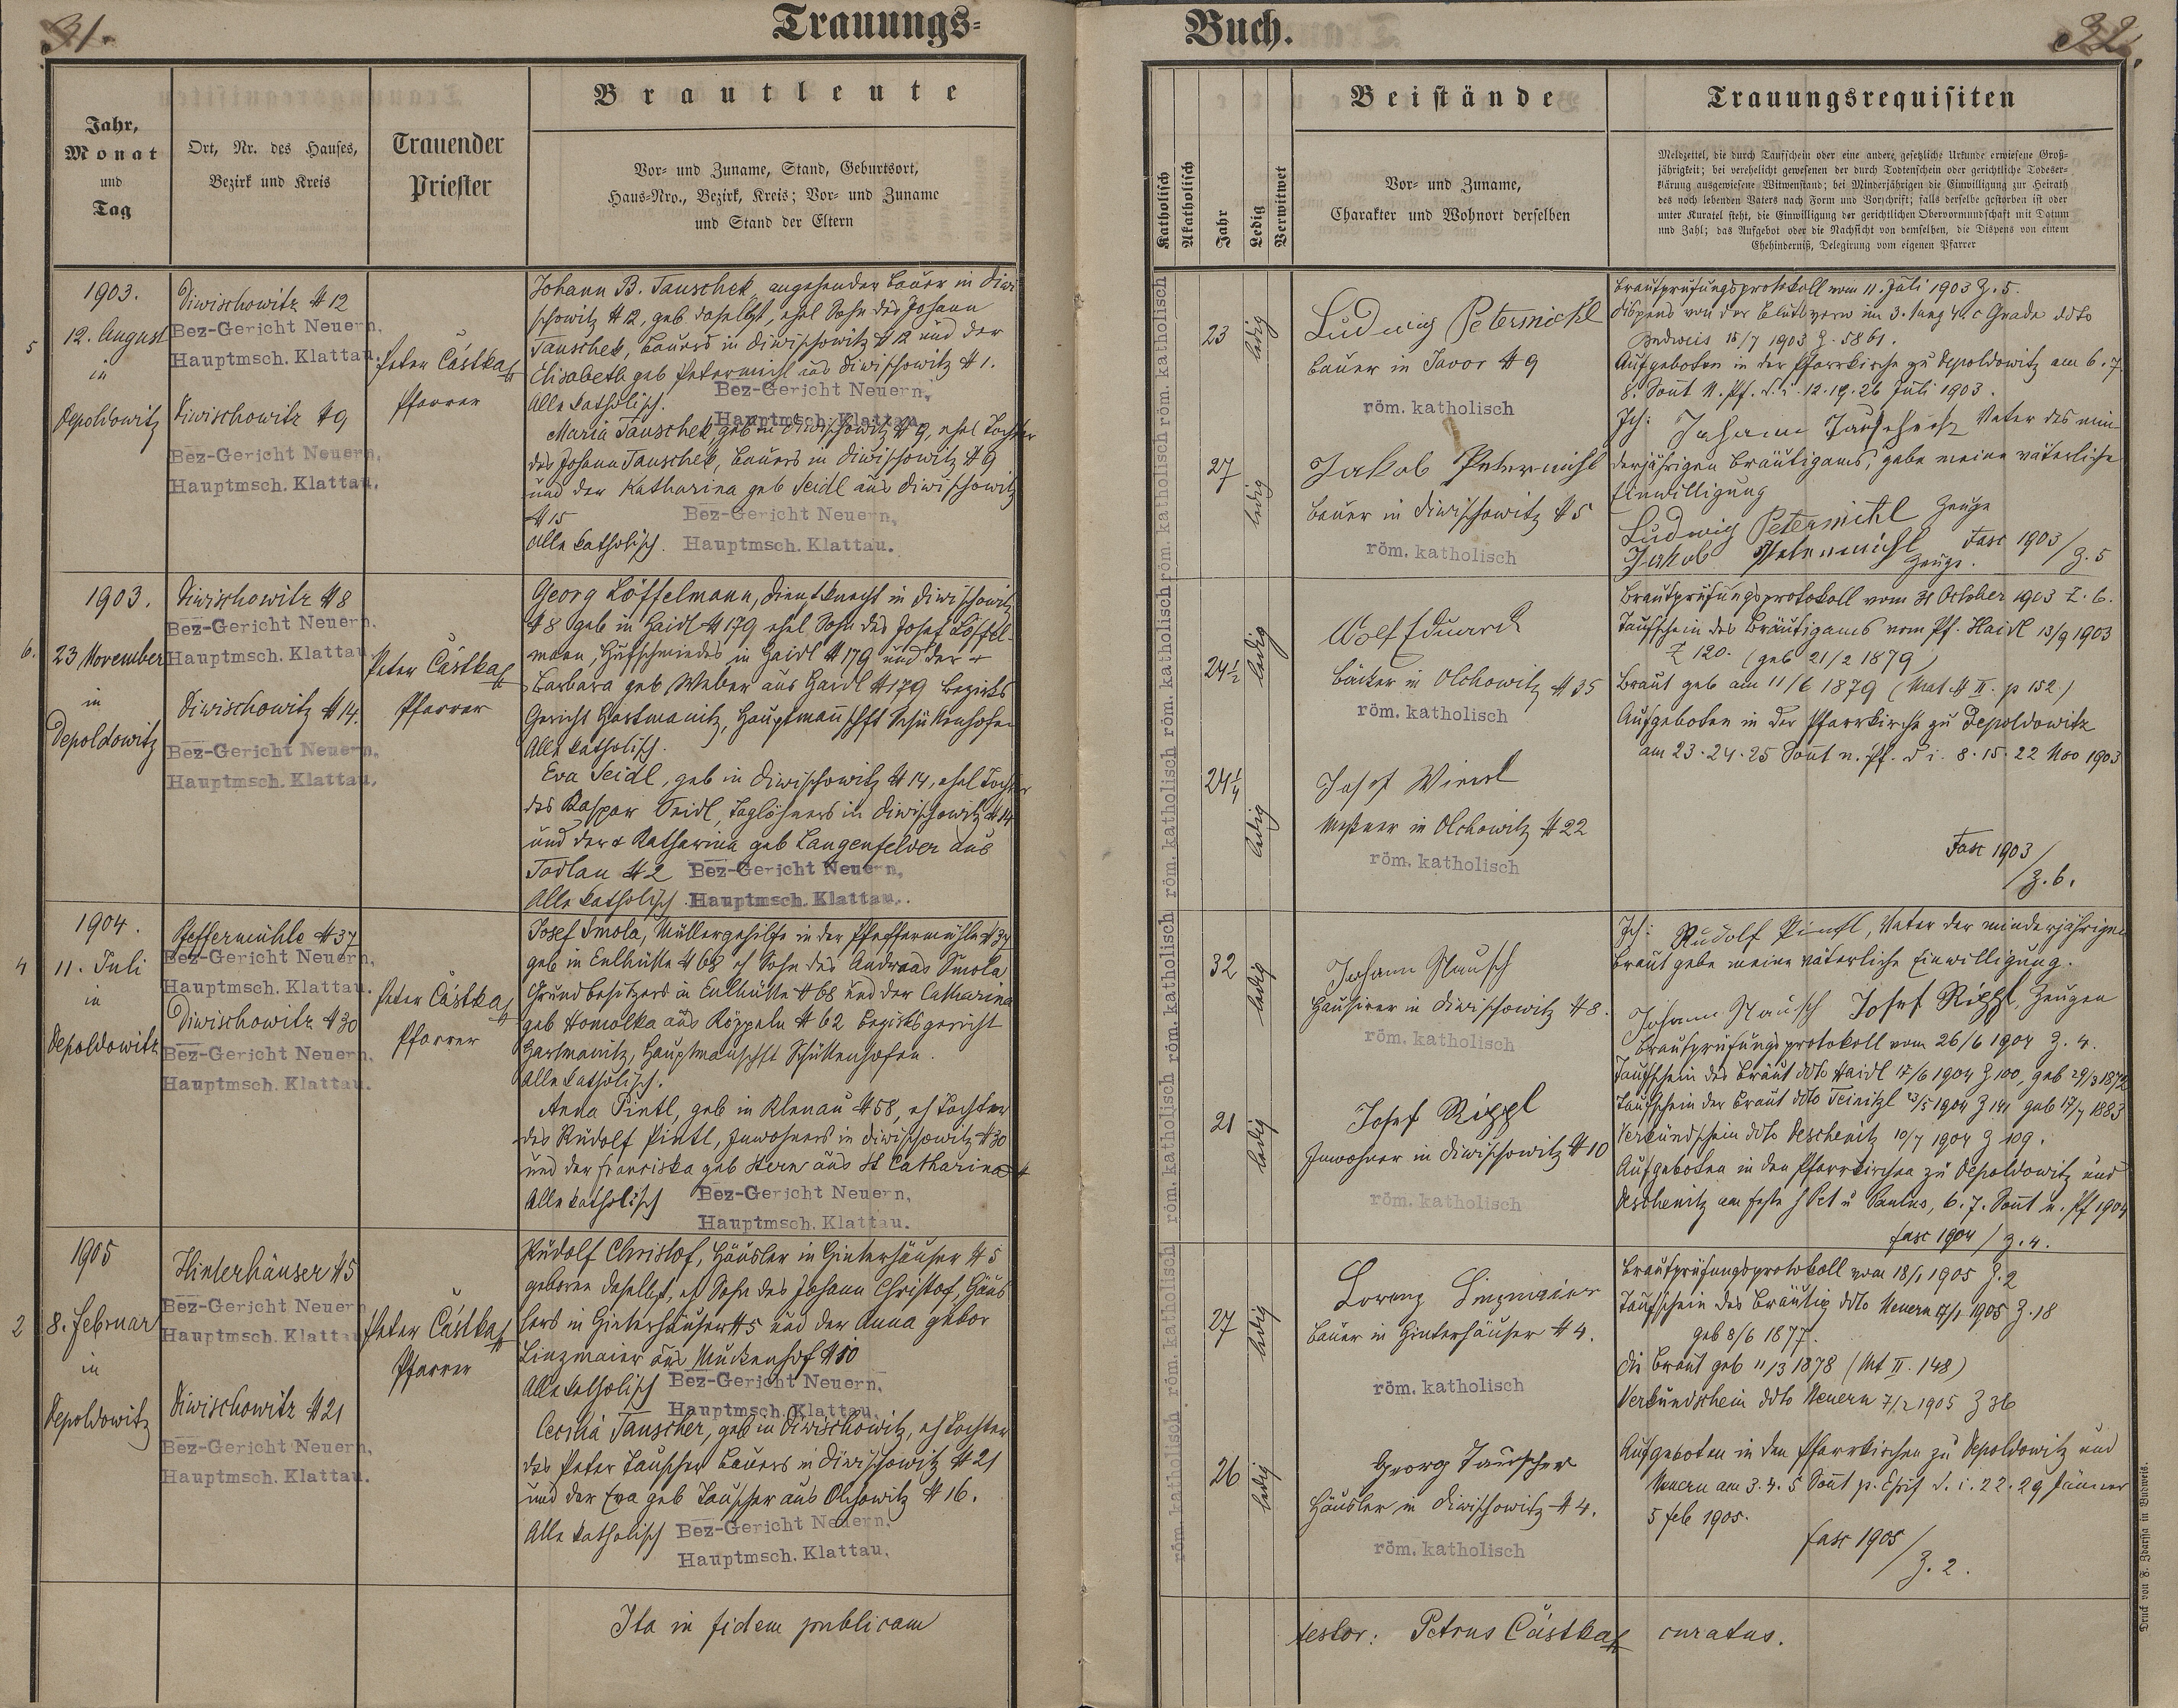 31.
Trauungs-
Jahr,
Monat
und
Tag
Ort, Nr. des Hauses,
Bezirk und Kreis
Trauender
Priester
Brautleute
Vor- und Zuname, Stand, Geburtsort,
Haus-Nro., Bezirk, Kreis; Vor- und Zuname
und Stand der Eltern
5
1903.
12. August
in
Depoldowitz
Diwischowitz # 12
Bez-Gericht Neuern.
Hauptmsch. Klattau.
Diwischowitz # 9
Bez-Gericht Neuern.
Hauptmsch. Klattau.
Peter Částka
Pfarrer
Johann B. Tauschek, angehender Bauer in Diwi
schowitz # 12, geb daselbst, ehel Sohn des Johann
Tauschek, Bauers in Diwischowitz # 12 und der
Elisabeth geb Petermichl aus Diwischowitz # 1.
Alle katholisch.
Bez-Gericht Neuern.
Hauptmsch. Klattau.
Maria Tauschek, geb in Diwischowitz # 9, ehel Tochter
des Johann Tauschek, Bauers in Diwischowitz # 9
und der Katharina geb Seidl aus Diwischowitz
# 15
Alle katholisch.
Bez-Gericht Neuern.
Hauptmsch. Klattau.
6.
1903.
23 November
in
Depoldowitz
Diwischowitz # 8
Bez-Gericht Neuern.
Hauptmsch. Klattau.
Diwischowitz # 14.
Bez-Gericht Neuern.
Hauptmsch. Klattau.
Peter Částka
Pfarrer
Georg Löffelmann, Dienstknecht in Diwischowitz
# 8 geb in Haidl # 179 ehel Sohn des Josef Löffel-
mann, Hufschmiedes in Haidl # 179 und der +
Barbara geb Weber aus Haidl # 179 Bezirks
Gericht Hartmanitz, Hauptmannschft Schüttenhofen
Alle katholisch.
Eva Seidl, geb in Diwischowitz # 14, ehel Tochter
des Kaspar Seidl, Taglöhners in Diwischowitz # 14
und der + Katharina geb Langenfelder aus
Todlau # 2
Alle katholisch.
Bez-Gericht Neuern.
Hauptmsch. Klattau.
4
1904.
11. Juli
in
Depoldowitz
Pfeffermühle # 37
Bez-Gericht Neuern.
Hauptmsch. Klattau.
Diwischowitz # 30
Bez-Gericht Neuern.
Hauptmsch. Klattau.
Peter Částka
Pfarrer
Josef Smola, Müllergehilfe in der Pfeffermühle # 37
geb in Eulhütte # 68 eh Sohn des Andreas Smola
Grundbesitzers in Eulhütte # 68 und der Catharina
geb Homolka aus Köppeln # 62 Bezirksgericht
Hartmanitz, Hauptmannschft Schüttenhofen.
Alle katholisch.
Anna Pintl, geb in Klenau # 58, eh Tochter
des Rudolf Pintl, Inwohners in Diwischowitz # 30
und der Franciska geb Stern aus St Catharina #
Alle katholisch
Bez-Gericht Neuern.
Hauptmsch. Klattau.
2
1905
8. Februar
in
Depoldowitz
Hinterhäuser # 5
Bez-Gericht Neuern
Hauptmsch. Klattau
Diwischowitz # 21
Bez-Gericht Neuern.
Hauptmsch. Klattau.
Peter Částka
Pfarrer
Rudolf Christof, Häusler in Hinterhäuser # 5
geboren daselbst, eh Sohn des Johann Christof, Häus
lers in Hinterhäuser # 5 und der Anna gebor
Linzmaier aus Muckenhof # 10
Alle katholisch
Bez-Gericht Neuern.
Hauptmsch. Klattau.
Cecilia Tauscher, geb in Diwischowitz, eh Tochter
des Peter Tauscher Bauers in Diwischowitz # 21
und der Eva geb Tauscher aus Olchowitz # 16.
Alle katholisch
Bez-Gericht Neuern.
Hauptmsch. Klattau.
Ita in fidem publicam
Buch.
32.
Katholisch
Akatholisch
Jahr
Ledig
Verwitwet
Beistände
Vor- und Zuname,
Charakter und Wohnort derselben
Trauungsrequisiten
Meldzettel, die durch Taufschein oder eine andere gesetzliche Urkunde erwiesene Groß-
jährigkeit; bei verehelicht gewesenen der durch Todtenschein oder gerichtliche Todeser-
klärung ausgewiesene Witwenstand; bei Minderjährigen die Einwilligung zur Heirath
des noch lebenden Vaters nach Form und Vorschrift; falls derselbe gestorben ist oder
unter Kuratel steht, die Einwilligung der gerichtlichen Obervormundschaft mit Datum
und Zahl; das Aufgebot oder die Nachsicht von demselben, die Dispens von einem
Ehehinderniß, Delegirung vom eigenen Pfarrer
röm. katholisch
röm. katholisch
23
ledig
Ludwig Petermichl
Bauer in Javor # 9
röm. katholisch
27
ledig
Jakob Petermichl
Bauer in Diwischowitz # 5
röm. katholisch
Brautprüfungsprotokoll vom 11. Juli 1903 Z. 5.
Dispens von der Blutsverw im 3. lung 4. c Grade ddto
Budweis 15/7 1903 Z. 5861.
Aufgeboten in der Pfarrkirche zu Depoldowitz am 6. 7
8. Sont n. Pf. d. i. 12. 19. 26 Juli 1903.
Ich: Johann Tauschek Vater des min
derjährigen Bräutigams, gebe meine väterliche
Einwilligung
Ludwig Petermichl Zeuge
Jakob Petermichl Zeuge.
Fasc 1903 / Z. 5
röm. katholisch
röm. katholisch
24½
ledig
Wolf Eduard
Bäcker in Olchowitz # 35
röm. katholisch
24¼
ledig
Josef Wierl
Meßner in Olchowitz # 22
röm. katholisch
Brautprüfungsprotokoll vom 31 October 1903 Z. 6.
Taufschein des Bräutigams vom Pf. Haidl 13/9 1903
Z 120. (geb 21/2 1879)
Braut geb am 11/6 1879 (Mat. # II. p 152.)
Aufgeboten in der Pfarrkirche zu Depoldowitz
am 23. 24. 25 Sont n. Pf. d i. 8. 15. 22 Nov 1903
Fasc 1903
/ Z. 6.
röm. katholisch
röm. katholisch
32
ledig
Johann
Hausirer in Diwischowitz # 8.
röm. katholisch
21
ledig
Josef Rippl
Inwohner in Diwischowitz # 10
röm. katholisch
Ich: Rudolf Pintl, Vater der minderjährigen
Braut gebe meine väterliche Einwilligung.
Johann Josef Rippl, Zeugen
Brautprüfungsprotokoll vom 26/6 1904 Z. 4.
Taufschein des Bräut ddto Haidl 17/6 1904 Z 100, geb 29/3 1872
Taufschein der Braut ddto Teinitzl 23/5 1904 Z 141 geb 17/7 1883
Verkündschein ddto Deschenitz 10/7 1904 Z 109.
Aufgeboten in den Pfarrkirchen zu Depoldowitz und
Deschenitz am Feste h Pet u Paulus, 6. 7. Sont n. Pf 1904
Fasc 1904 / Z. 4.
röm. katholisch
röm. katholisch
27
ledig
Lorenz Linzmaier
Bauer in Hinterhäuser # 4.
röm. katholisch
26
ledig
Georg Tauscher
Häusler in Diwischowitz # 4.
röm. katholisch
Brautprüfungsprotokoll vom 18/1 1905 Z. 2
Taufschein des Bräutig ddto Neuern 17/1 1905 Z. 18
geb 8/6 1877.
Die Braut geb 11/3 1878 (Mt II. 148)
Verkündschein ddto Neuern 7/2 1905 Z 36
Aufgeboten in den Pfarrkirchen zu Depoldowitz und
Neuern am 3. 4. 5 Sont p. Epif d. i. 22. 29 Jänner
5 Feb 1905.
Fasc 1905
/ Z. 2.
testor: Petrus Částka curatus.
Druck von F. Zdarssa in Budweis.